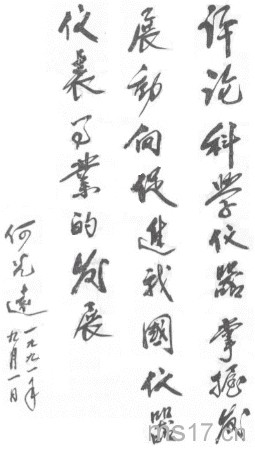 评论科学仪器掌握发
展动向促進我國仪器
仪表事業的发展
何光遠
一九九一年
九月一日
ms17.cn